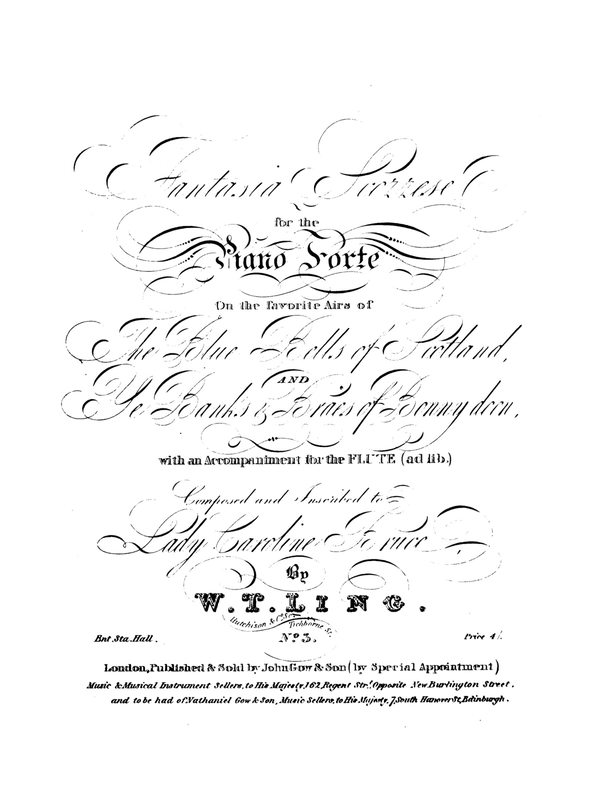 Fantasia Scozzese
for the
Piano Forte
On the favorite Airs of
The Blue Bells of Scotland,
AND
Ye Banks & Braes of Bonny doon,
with an Accompaniment for the FLUTE (ad lib.)
Composed and Inscribed to
Lady Caroline Bruce
By
W. T. LING.
Hutchison & Co. Sc. Tichborne St.
Ent. Sta. Hall.
No. 3.
Price 4/.
London, Published & Sold by John Gow & Son (by Special Appointment)
Music & Musical Instrument Sellers, to His Majesty, 162, Regent Strt. Opposite New Burlington Street.
and to be had of Nathaniel Gow & Son, Music Sellers, to His Majesty, 7, South Hanover St, Edinburgh.